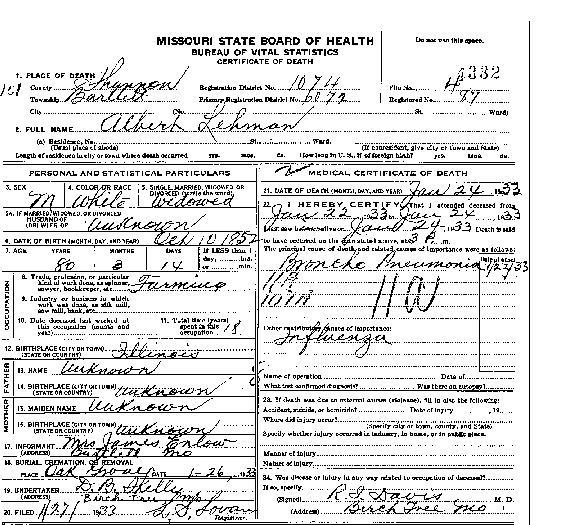 MISSOURI STATE BOARD OF HEALTH
BUREAU OF VITAL STATISTICS
CERTIFICATE OF DEATH
Do not use this space.
1. PLACE OF DEATH
County Shannon
Registration District No. 1074
File No. 4332
Township Bartlett
Primary Registration District No. 6072
Registered No.
City
No.
St.
Ward)
2. FULL NAME Albert Lehman
(a) Residence, No. St. Ward.
(Usual place of abode) (If nonresident, give city or town and State)
Length of residence in city or town where death occurred yrs. mos. ds. How long in U. S., if of foreign birth? yrs. mos. ds.
PERSONAL AND STATISTICAL PARTICULARS
3. SEX M
4. COLOR OR RACE White
5. SINGLE, MARRIED, WIDOWED OR DIVORCED (write the word) Widowed
5A. IF MARRIED, WIDOWED, OR DIVORCED
HUSBAND OF
(OR) WIFE OF Unknown
6. DATE OF BIRTH (MONTH, DAY, AND YEAR) Oct 10 1852
7. AGE YEARS 80 MONTHS 3 DAYS 14
If LESS than 1 day, hrs. or min.
OCCUPATION
8. Trade, profession, or particular kind of work done, as spinner, sawyer, bookkeeper, etc. Farming
9. Industry or business in which work was done, as silk mill, saw mill, bank, etc.
10. Date deceased last worked at this occupation (month and year)
11. Total time (years) spent in this occupation 18
12. BIRTHPLACE (CITY OR TOWN) Illinois
(STATE OR COUNTRY)
FATHER
13. NAME Unknown
14. BIRTHPLACE (CITY OR TOWN) Unknown
(STATE OR COUNTRY)
MOTHER
15. MAIDEN NAME Unknown
16. BIRTHPLACE (CITY OR TOWN) Unknown
(STATE OR COUNTRY)
17. INFORMANT Mrs James Enlow
(ADDRESS) Bartlett Mo
18. BURIAL, CREMATION, OR REMOVAL
PLACE Oak Grove DATE 1-26, 1933
19. UNDERTAKER
(ADDRESS) Birch Tree Mo
20. FILED 1933
Registrar.
MEDICAL CERTIFICATE OF DEATH
21. DATE OF DEATH (MONTH, DAY, AND YEAR) Jan 24 1933
22. I HEREBY CERTIFY, That I attended deceased from
Jan 22, 33, to Jan 24, 1933
I last saw alive on Jan 24, 33 Death is said
to have occurred on the date stated above, at 3 P. m.
The principal cause of death and related causes of importance were as follows:
Broncho Pneumonia
Date of onset 1/22/33
107A
11A
Other contributory causes of importance:
Influenza
Name of operation Date of
What test confirmed diagnosis? Was there an autopsy?
23. If death was due to external causes (violence), fill in also the following:
Accident, suicide, or homicide? Date of injury , 19
Where did injury occur?
(Specify city or town, county, and State)
Specify whether injury occurred in industry, in home, or in public place.
Manner of injury
Nature of injury
24. Was disease or injury in any way related to occupation of deceased?
If so, specify
(Signed) R. S. Davis M. D.
(Address) Birch Tree Mo